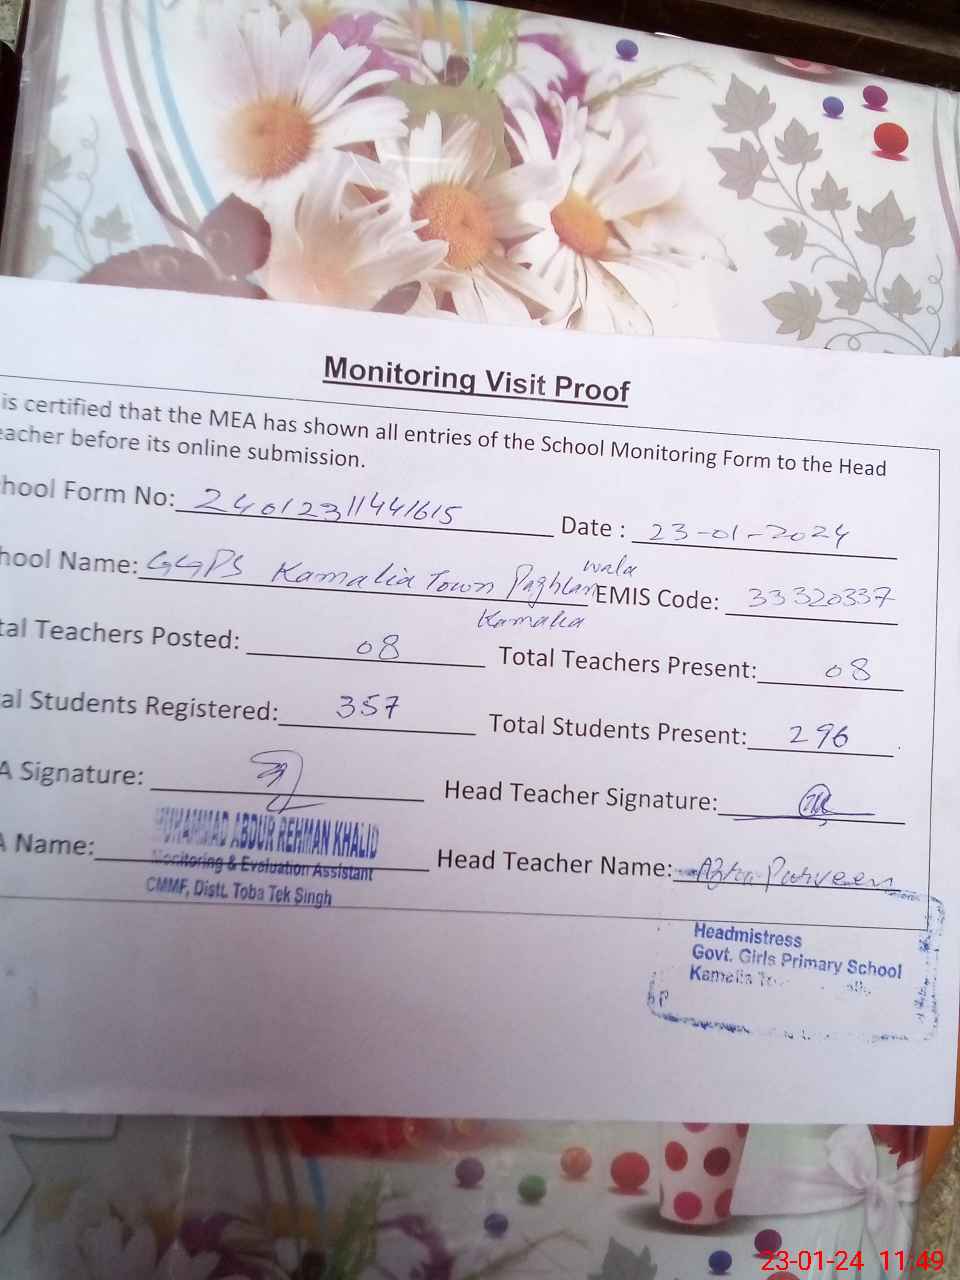 Monitoring Visit Proof
is certified that the MEA has shown all entries of the School Monitoring Form to the Head
eacher before its online submission.
hool Form No: 2401231144 1615 Date : 23-01-2024
hool Name: GGPS Kamalia Town Paghlan wala Kamalia EMIS Code: 33320337
tal Teachers Posted: 08 Total Teachers Present: 08
al Students Registered: 357 Total Students Present: 296
A Signature: Head Teacher Signature:
MUHAMMAD ABDUR REHMAN KHALID
A Name: Head Teacher Name: Parveen
Monitoring & Evaluation Assistant
CMMF, Distt. Toba Tek Singh
Headmistress
Govt. Girls Primary School
Kamalia
23-01-24 11:49